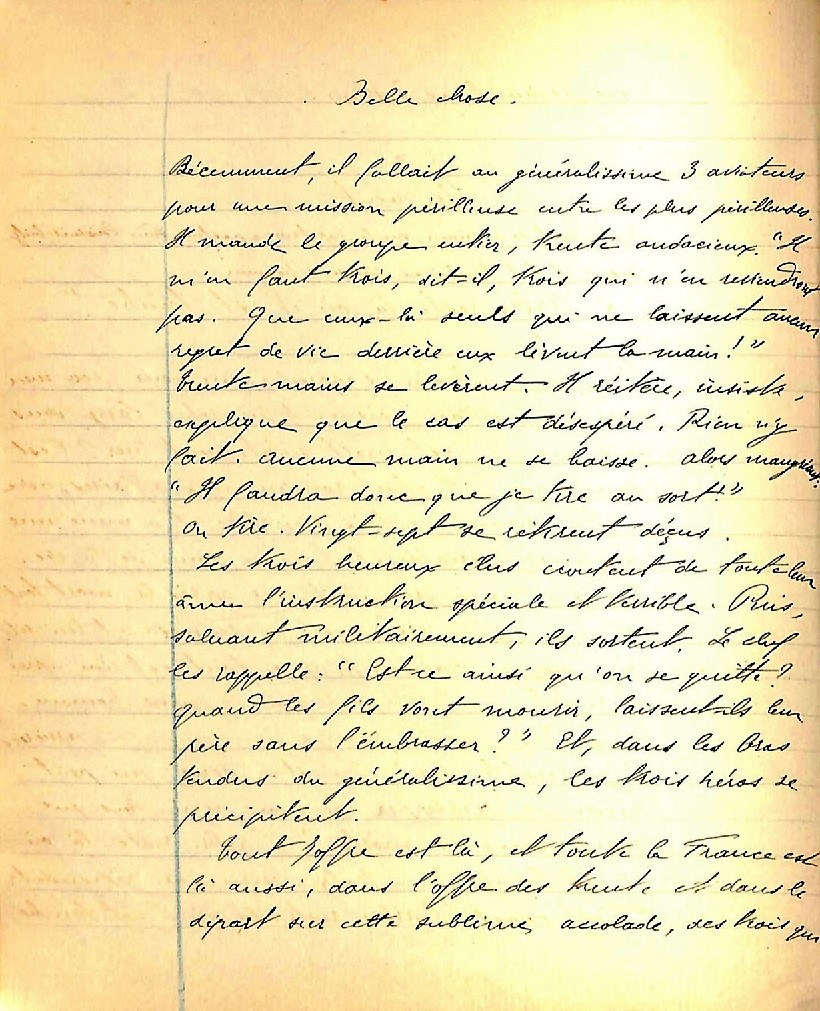 Belle chose.
Récemment, il fallait au généralissime 3 aviateurs
pour une mission périlleuse entre les plus périlleuses.
Il mande le groupe entier, trente audacieux. "Il
m'en faut trois, dit-il, trois qui n'en reviendront
pas. Que ceux-là seuls qui ne laissent aucun
regret de vie derrière eux lèvent la main!"
Trente mains se levèrent. Il réitère, insiste,
explique que le cas est désespéré. Rien n'y
fait. aucune main ne se baisse. alors
"Il faudra donc que je tire au sort!"
On tire. Vingt-sept se retirent déçus.
Les trois heureux élus écoutent de toute leur
âme l'instruction spéciale et terrible. Puis,
saluant militairement, ils sortent. Le chef
les rappelle: "Est-ce ainsi qu'on se quitte?
quand les fils vont mourir, laissent-ils leur
père sans l'embrasser?" Et, dans les bras
tendus du généralissime, les trois héros se
précipitent.
Tout Joffre est là, et toute la France est
là aussi, dans l'offre des trente et dans le
départ sur cette sublime accolade, des trois qui